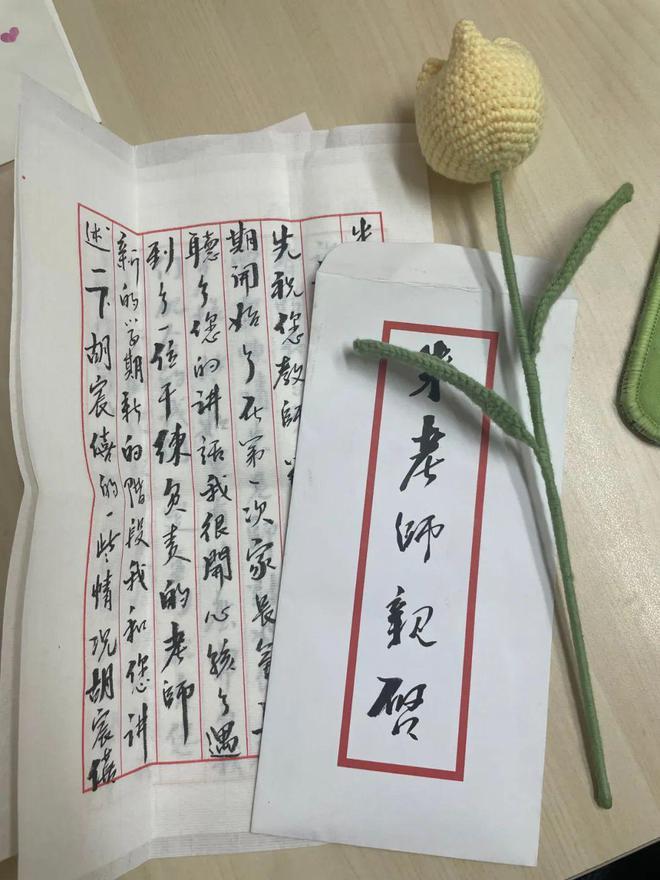 先祝您教師
期開始了在第一次家長會
聽了您的講話我很開心孩子遇
到了一位干練负责的老師
新的学期新的階段我和您讲
述一下胡宸僖的一些情况胡宸僖
老師親啓